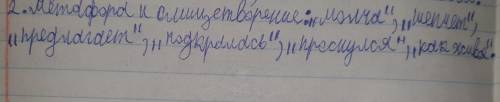 2. Метафора и олицетворение: „молча", „шепчет",
„предлагает", „подкралась", „проснулся", „как живая".